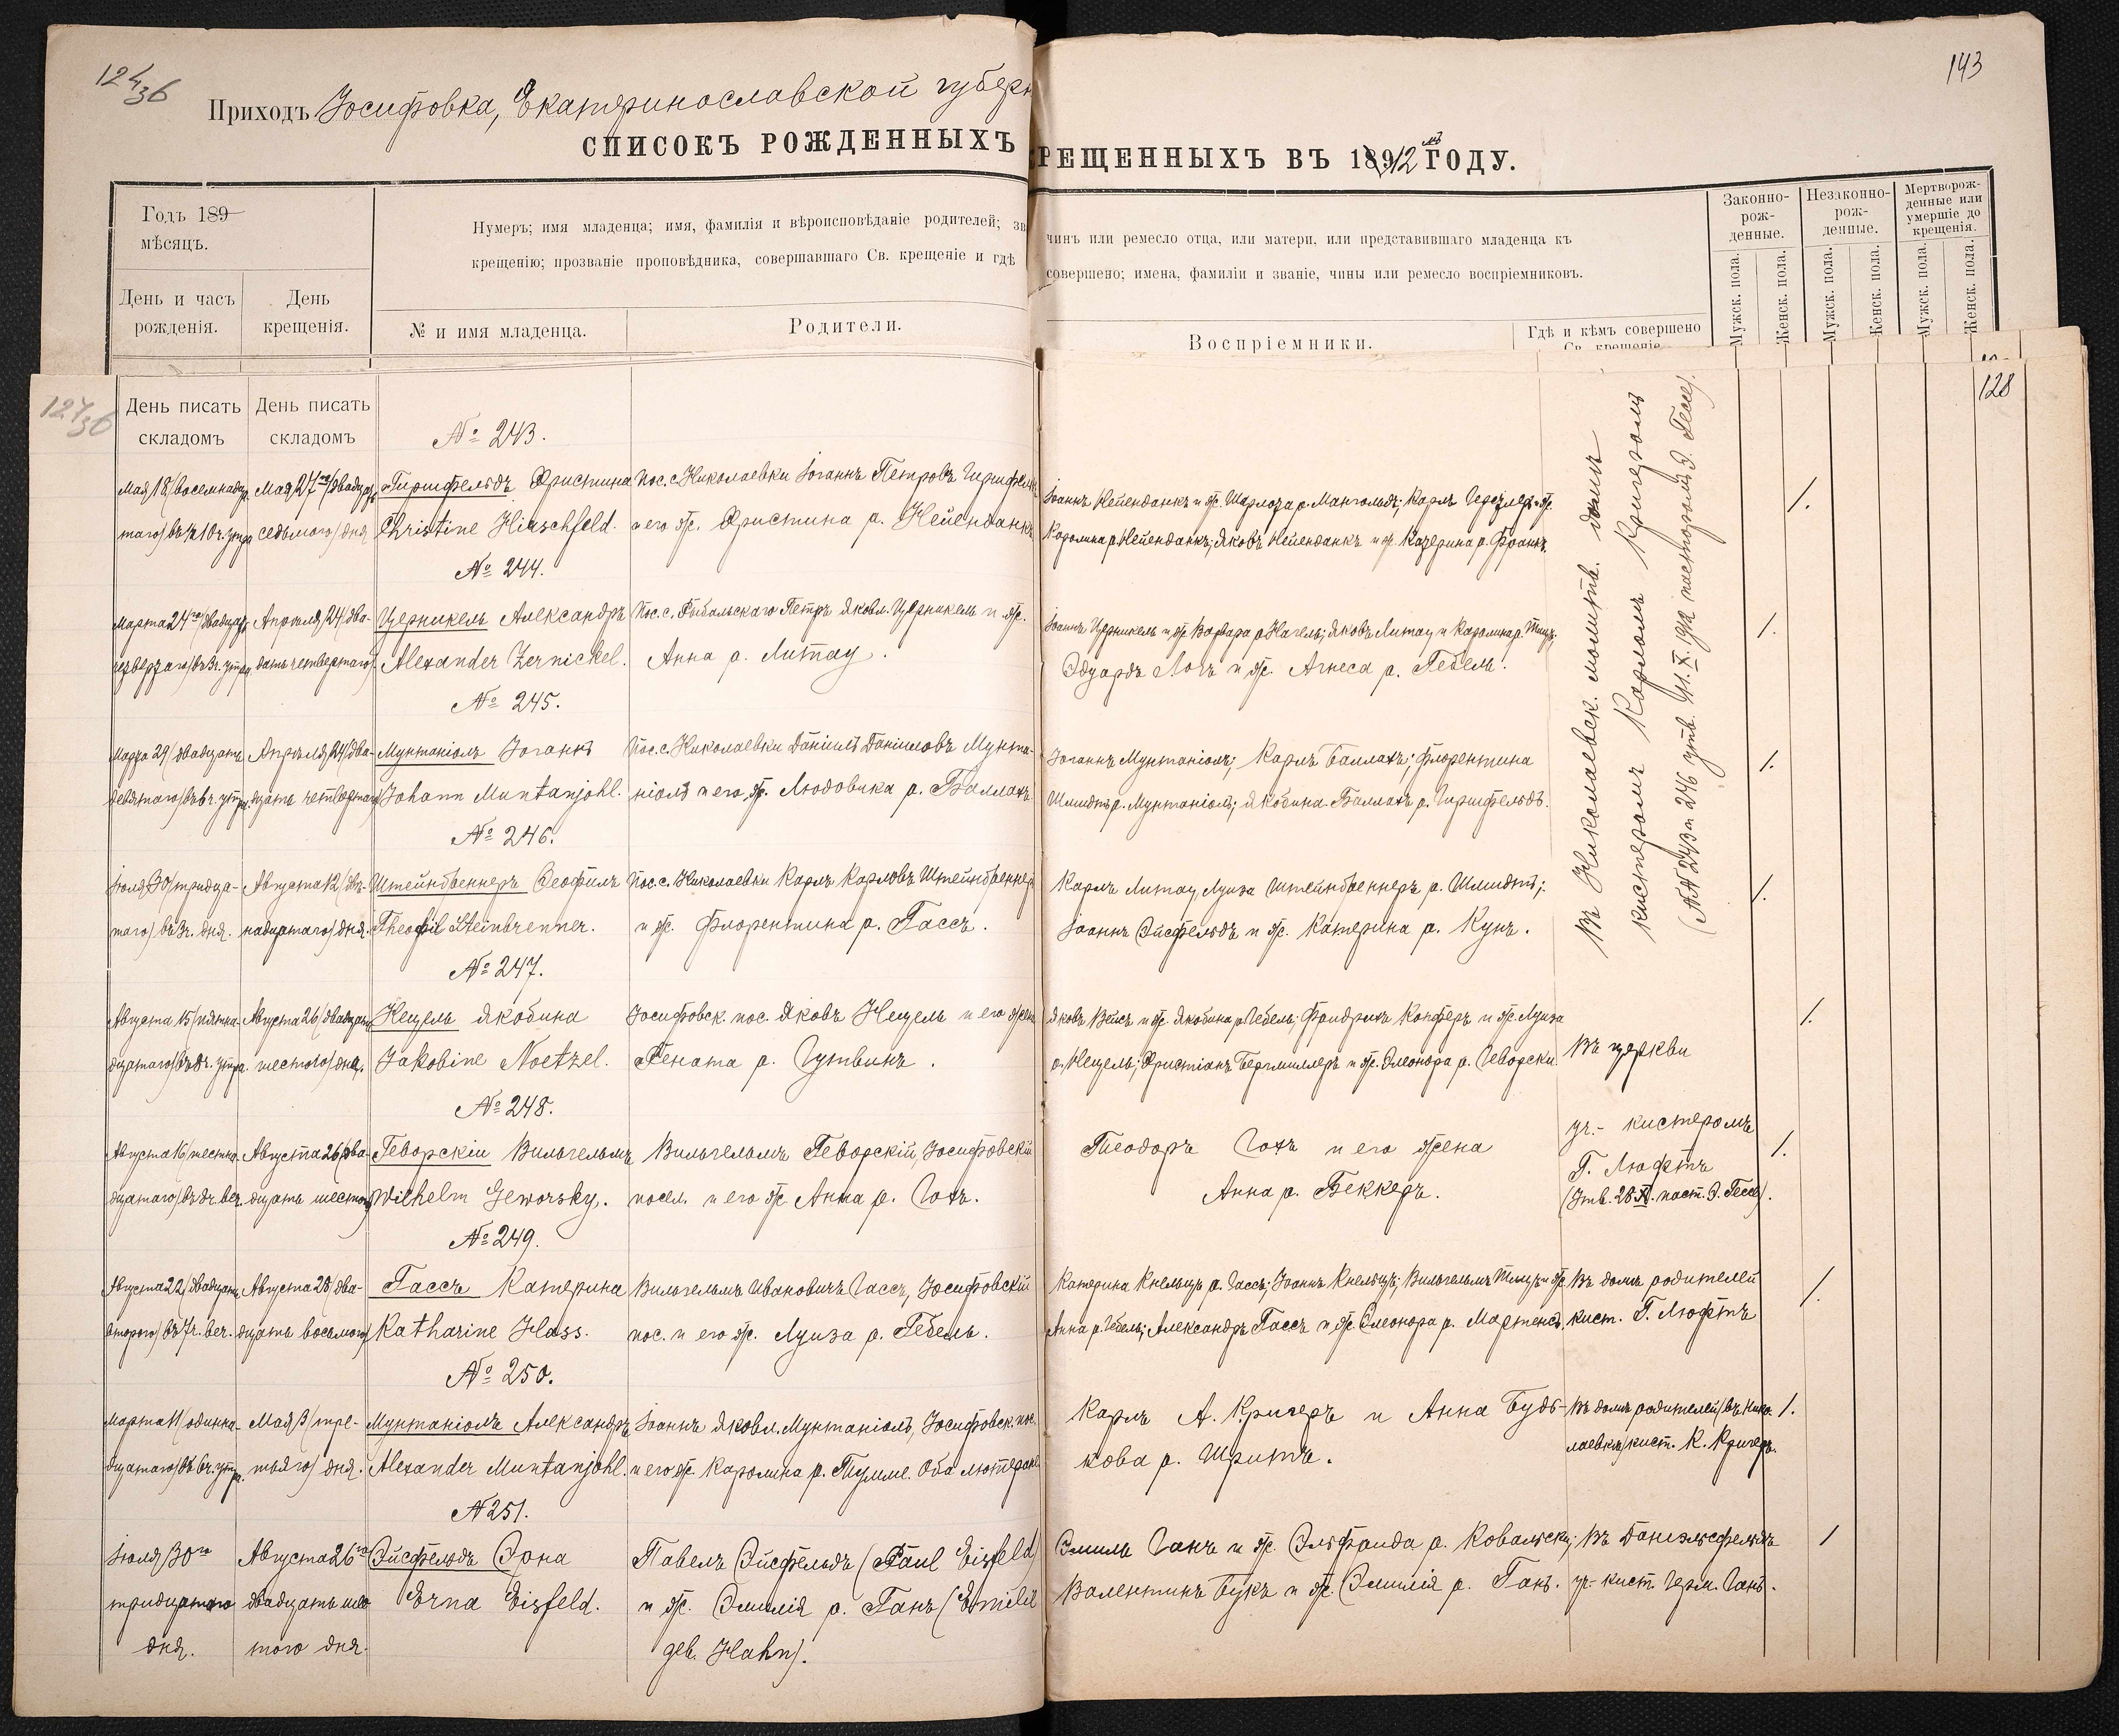 124/36
143
Приходъ Іосифовка, Екатеринославской губерн
СПИСОКЪ РОЖДЕННЫХЪ
РЕЩЕННЫХЪ ВЪ 1912 ГОДУ.
Годъ 189
мѣсяцъ.
Нумеръ; имя младенца; имя, фамилія и вѣроисповѣданіе родителей; зв
чинъ или ремесло отца, или матери, или представившаго младенца къ
крещенію; прозваніе проповѣдника, совершавшаго Св. крещеніе и гдѣ
совершено; имена, фамиліи и званіе, чины или ремесло воспріемниковъ.
Законно-рож-денные.
Незаконно-рож-денные.
Мертворож-денные или умершіе до крещенія.
День и часъ рожденія.
День крещенія.
№ и имя младенца.
Родители.
Воспріемники.
Гдѣ и кѣмъ совершено
Св. крещеніе
Мужск. пола.
Женск. пола.
Мужск. пола.
Женск. пола.
Мужск. пола.
Женск. пола.
127/36
128
День писать складомъ
День писать складомъ
№ 243.
Мая 18/восемнадца-
таго/ въ 10 ч. утра
Мая 27го/двадцать
седьмого/ дня
Гиршфельдъ Христина
Christine Hirschfeld.
Пос. с. Николаевки Іоганнъ Петровъ Гиршфельдъ
и его ж. Христина р. Нейенданкъ
Іоаннъ Нейенданкъ и ж. Шарлота р. Мангольдъ; Карлъ
Каролина р. Нейенданкъ; Яковъ Нейенданкъ и ж. Катерина р. Франкъ.
1.
Въ Николаевск. молитв. домѣ
кистеромъ Карломъ Кригеромъ
(№№ 243 и 246 утв. 11.X.12 пасторомъ Э. Гессе).
№ 244.
Марта 24го/двадцать
четвертаго/ въ 3 ч. утра
Апрѣля 24/два-
дцать четвертаго/
Церникель Александръ
Alexander Zernickel.
Пос. с. Рыбальскаго Петръ Яковл. Церникель и ж.
Анна р. Литау.
Іоаннъ Церникель и ж. Варвара р. Нагель; Яковъ Литау и Каролина р.
Эдуардъ и ж. Агнеса р. Гебель.
1.
№ 245.
Марта 29/двадцать
девятаго/ въ 6 ч. утра
Апрѣля 24/два-
дцать четвертаго
Мунтаніолъ Іоганнъ
Johann Muntanjohl.
Пос. с. Николаевки Даніилъ Даніиловъ Мунта-
ніолъ и его ж. Людовика р. Баллахъ
Іоганнъ Мунтаніолъ; Карлъ Баллахъ; Флорентина
Шмидтъ р. Мунтаніолъ; Якобина Баллахъ р. Гиршфельдъ.
1.
№ 246.
Іюля 30/тридца-
таго/ въ 3 ч. дня.
Августа 12/две-
надцатаго/ дня.
Штейнбреннеръ Теофилъ
Theophil Steinbrenner.
Пос. с. Николаевки Карлъ Карловъ Штейнбреннеръ
и ж. Флорентина р. Гассъ.
Карлъ Литау, Луиза Штейнбреннеръ р. Шмидтъ;
Іоаннъ Эйсфельдъ и ж. Катерина р. Кунъ.
1.
№ 247.
Августа 15/пятна-
дцатаго/ въ 2 ч. утра.
Августа 26/двадцать
шестого/ дня.
Нецель Якобина
Jakobine Noetzel.
Іосифовск. пос. Яковъ Нецель и его жена
Рената р. Гутвинъ.
Яковъ Вейсъ и ж. Якобина р. Гебель; Фридрихъ Конферъ и ж. Луиза
р. Нецель; Христіанъ Бергмиллеръ и ж. Элеонора р. Геворски.
Въ церкви
1.
№ 248.
Августа 16/шестна-
дцатаго/ въ 2 ч. веч.
Августа 26/два-
дцать шестого/
Геворскій Вильгельмъ
Wilhelm Geworsky.
Вильгельмъ Геворскій, Іосифовскій
посел. и его ж. Анна р. Готъ.
Теодоръ Готъ и его жена
Анна р. Беккеръ.
уч.- кистеромъ
Г. Люфтъ
(Утв. 28.X. паст. Э. Гессе).
1.
№ 249.
Августа 22/двадцать
второго/ въ 7 ч. веч.
Августа 28/два-
дцать восьмого/
Гассъ Катерина
Katharine Hass.
Вильгельмъ Ивановичъ Гассъ, Іосифовскій
пос. и его ж. Луиза р. Гебель.
Катерина Кнельцъ р. Гассъ; Іоаннъ Кнельцъ; Вильгельмъ и ж.
Анна р. Гебель; Александръ Гассъ и ж. Элеонора р. Мартенсъ.
Въ домѣ родителей
кист. Г. Люфтъ
1.
№ 250.
Марта 11/одинна-
дцатаго/ въ 6 ч. утра.
Мая 3/тре-
тьяго/ дня.
Мунтаніолъ Александръ
Alexander Muntanjohl.
Іоаннъ Яковл. Мунтаніолъ, Іосифовск. пос.
и его ж. Каролина р. Тумме. Оба лютеране
Карлъ А. Кригеръ и Анна Будь-
кова р. Шритъ.
Въ домѣ родителей/въ Нико-
лаевкѣ/кист. К. Кригеръ.
1.
№ 251.
Іюля 30го
тридцатаго
дня.
Августа 26го
двадцать шес
того дня.
Эйсфельдъ Эрна
Erna Eisfeld.
Павелъ Эйсфельдъ (Paul Eisfeld)
и ж. Эмилія р. Ганъ (Emilie
geb. Hahn).
Эмиль Ганъ и ж. Эльфрида р. Ковальски;
Валентинъ Букъ и ж. Эмилія р. Ганъ.
Въ Даніэльсфельдѣ
уч.- кист. Герм. Ганъ.
1